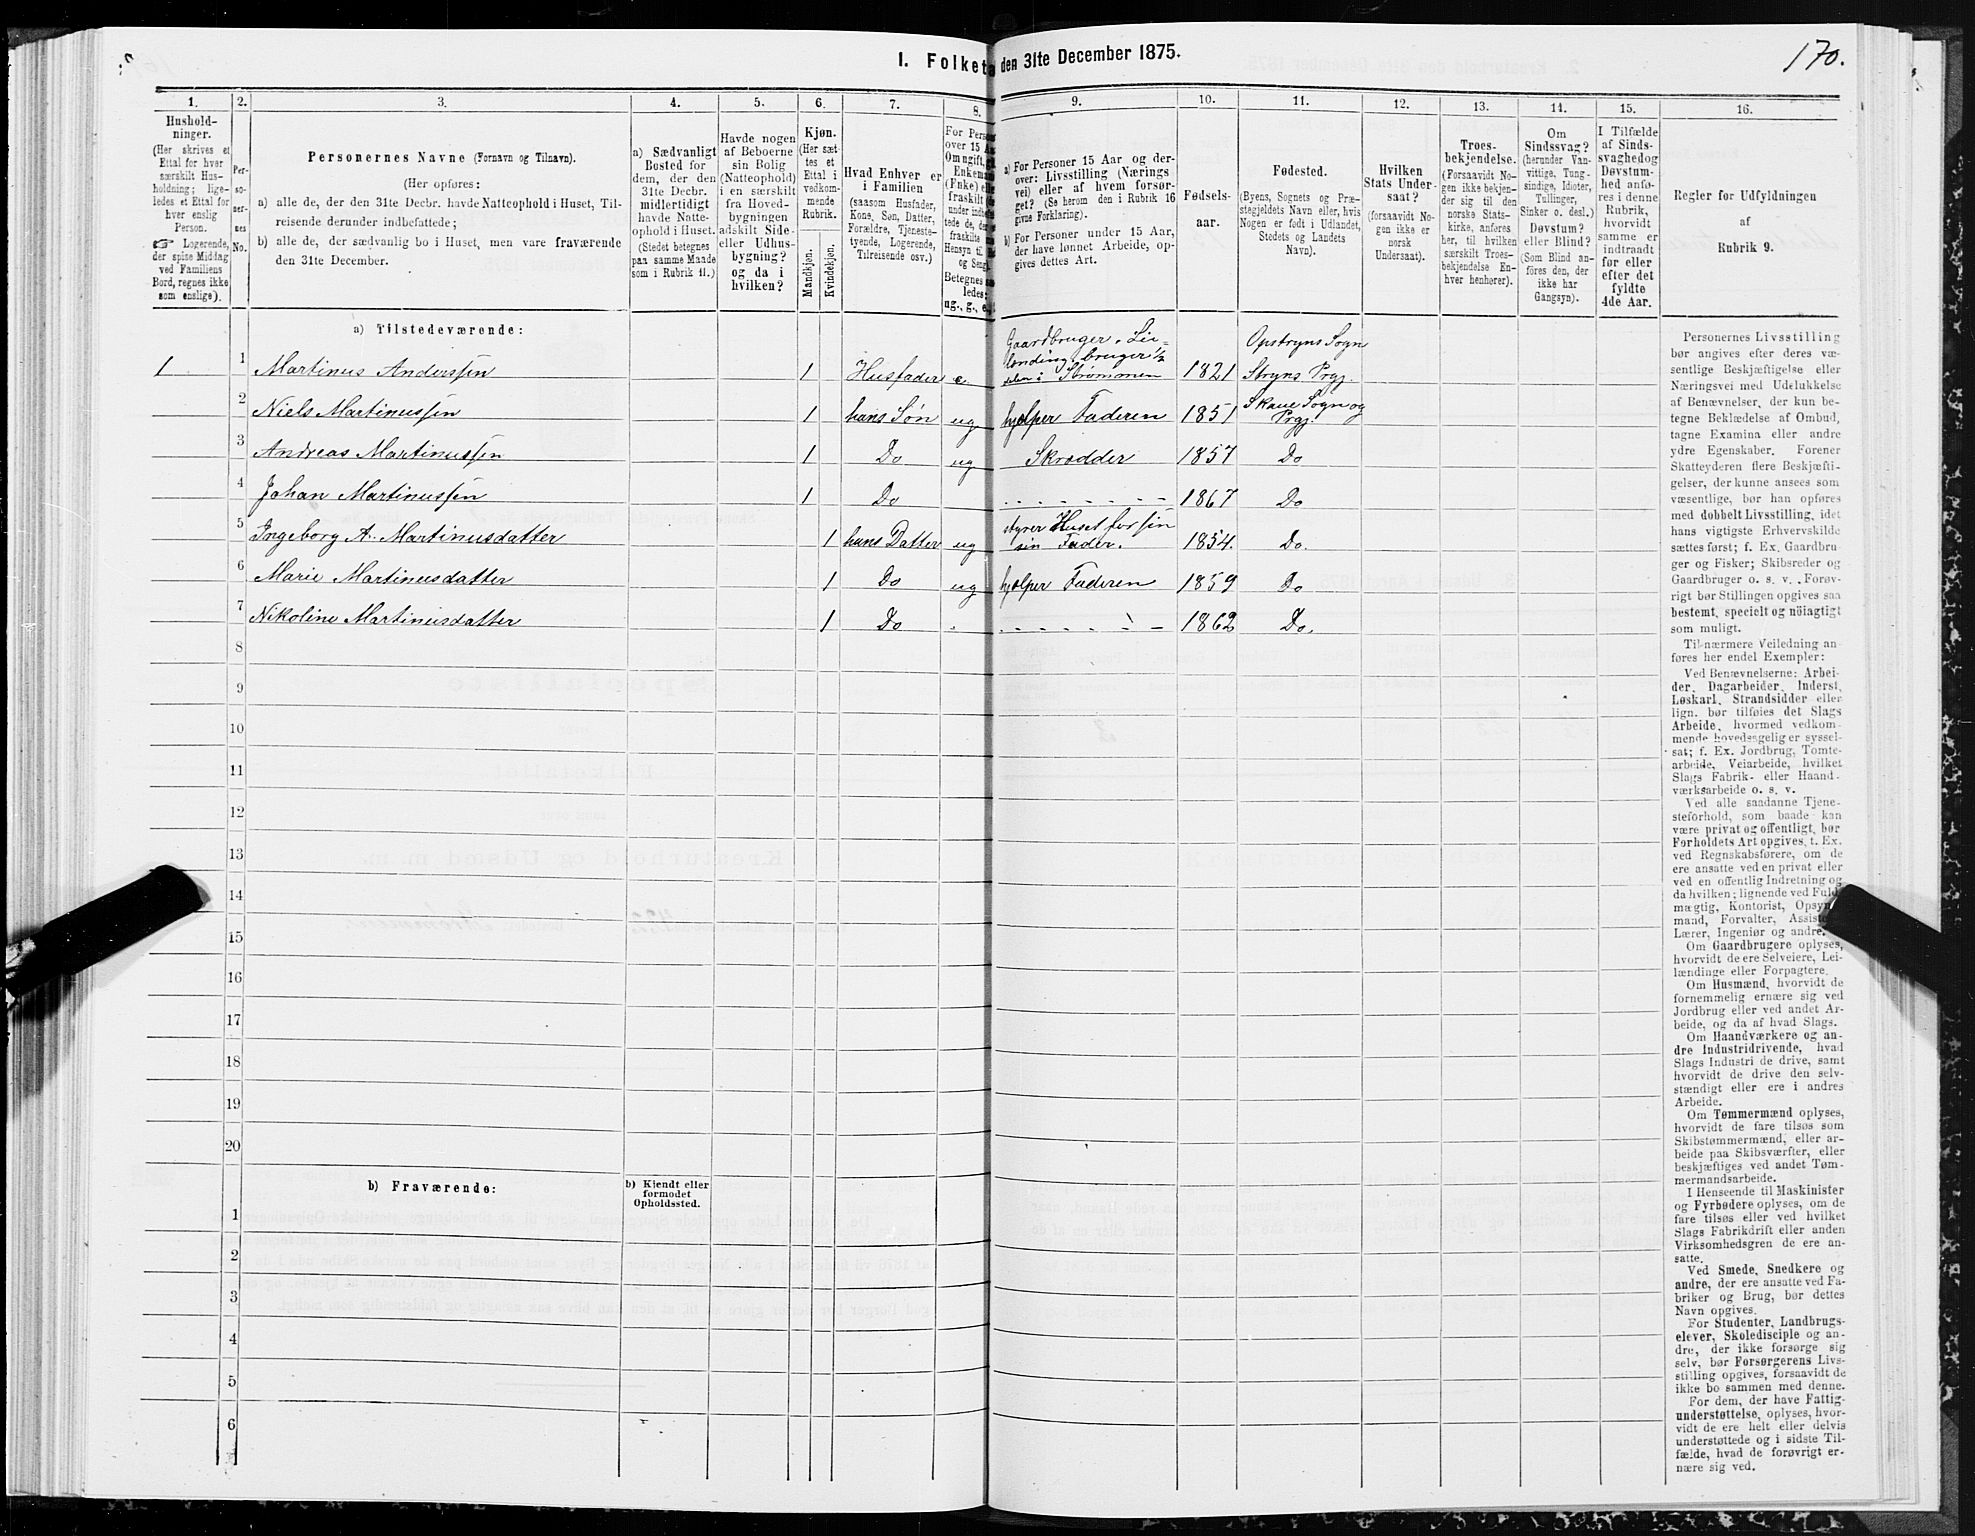 170.
I. Folketa den 31te December 1875.
1. 2. 3. 4. 5. 6. 7. 8. 9. 10. 11. 12. 13. 14. 15. 16.
Hushold-
ninger.
(Her skrives et
Ettal for hver
særskilt Hus-
holdning; lige-
ledes et Ettal for
hver enslig
Person.
☞ Logerende,
der spise Middag
ved Familiens
Bord, regnes ikke
som enslige).
Per-
so-
ner-
nes
No.
Personernes Navne (Fornavn og Tilnavn).
(Her opføres:
a) alle de, der den 31te Decbr. havde Natteophold i Huset, Til-
reisende derunder indbefattede;
b) alle de, der sædvanlig bo i Huset, men vare fraværende
den 31te December.
a) Sædvanligt
Bosted for
dem, der den
31te Decbr.
midlertidigt
havde Natte-
ophold i Huset.
(Stedet betegnes
paa samme Maade
som i Rubrik 11.)
Havde nogen
af Beboerne
sin Bolig
(Natteophold)
i en særskilt
fra Hoved-
bygningen
adskilt Side-
eller Udhus-
bygning?
og da i
hvilken?
Kjøn.
(Her sæt-
tes et
Ettal i
vedkom-
mende
Rubrik.
Mandkjøn.
Kvindekjøn.
Hvad Enhver er
i Familien
(saasom Husfader,
Kone, Søn, Datter,
Forældre, Tjeneste-
tyende, Logerende,
Tilreisende osv.)
For Perso
over 15 Aa
Om ugift, g
Enkema
(Enke) el
fraskilt
under indb
tede de,
fraskilte
Hensyn til
og Seng
Betegnes
ledes:
ug., g., e.
a) For Personer 15 Aar og der-
over: Livsstilling (Nærings
vei) eller af hvem forsør-
get? (Se herom den i Rubrik 16
givne Forklaring).
b) For Personer under 15 Aar,
der have lønnet Arbeide, op-
gives dettes Art.
Fødsels-
aar.
Fødested.
(Byens, Sognets og Præ-
stegjeldets Navn eller, hvis
Nogen er født i Udlandet,
Stedets og Landets
Navn).
Hvilken
Stats Under-
saat?
(forsaavidt No-
gen ikke er
norsk
Undersaat).
Troes-
bekjendelse.
(Forsaavidt No-
gen ikke bekjen-
der sig til den
norske Stats-
kirke, anføres
her, til hvilken
særskilt Troes-
bekjendelse En-
hver henhører).
Om
Sindssvag?
(herunder Van-
vittige, Tung-
sindige, Idioter,
Tullinger,
Sinker o. desl.)
Døvstum?
eller Blind?
(Som Blind an-
føres den, der
ikke har
Gangsyn).
I Tilfælde
af Sinds-
svaghedog
Døvstum-
hed anfø-
res i denne
Rubrik,
hvorvidt
samme er
indtraadt
før eller
efter det
fyldte
4de Aar.
Regler for Udfyldningen
af
Rubrik 9.
a) Tilstedeværende:
1 1 Martinus Anderssen 1 Husfader e. Gaardbruger, Lei-
lænding, bruger 1/2
delen i Strømmen 1821 Opstryns Sogn
Stryns Prgj.
2 Niels Martinussen 1 hans Søn ug hjelper Faderen 1851 Skaue Sogn og
Prgj.
3 Andreas Martinussen 1 Do ug Skrædder 1857 Do
4 Johan Martinussen 1 Do 1867 Do
5 Ingeborg A. Martinusdatter 1 hans Datter ug styrer Huset for sin
sin Fader. 1854. Do.
6 Marie Martinusdatter 1 Do ug hjelper Faderen 1859 Do
7 Nikoline Martinusdatter 1 Do 1862 Do.
8
9
10
11
12
13
14
15
16
17
18
19
20
b) Fraværende:
b) Kjendt eller
formodet
Opholdssted.
1
2
3
4
5
6
Personernes Livsstilling
bør angives efter deres væ-
sentlige Beskjæftigelse eller
Næringsvei med Udelukkelse
af Benævnelser, der kun be-
tegne Beklædelse af Ombud,
tagne Examina eller andre
ydre Egenskaber. Forener
Skatteyderen flere Beskjæfti-
gelser, der kunne ansees som
væsentlige, bør han opføres
med dobbelt Livsstilling, idet
hans vigtigste Erhvervskilde
sættes først; f. Ex. Gaardbru-
ger og Fisker; Skibsreder og
Gaardbruger o. s. v. Forøv-
rigt bør Stillingen opgives saa
bestemt, specielt og nöiagtigt
som muligt.
Til nærmere Veiledning an-
føres her endel Exempler:
Ved Benævnelserne: Arbei-
der, Dagarbeider, Inderst,
Løskarl, Strandsidder eller
lign. bør tilføies det Slags
Arbeide, hvormed vedkom-
mende hovedsagelig er syssel-
sat; f. Ex. Jordbrug, Tomte-
arbeide, Veiarbeide, hvilket
Slags Fabrik- eller Haand-
værksarbeide o. s. v.
Ved alle saadanne Tjene-
steforhold, som baade kan
være privat og offentligt, bør
Forholdets Art opgives, t. Ex.
ved Regnskabsførere, om de
ere ansatte ved en privat eller
ved en offentlig Indretning og
da hvilken; lignende ved Fuld
mægtig, Kontorist, Opsyn
mand, Forvalter, Assiste
Lærer, Ingeniør og andre.
Om Gaardbrugere oplyses,
hvorvidt de ere Selveiere, Lei-
lændinge eller Forpagtere.
Om Husmænd, hvorvidt de
fornemmelig ernære sig ved
Jordbrug eller ved andet Ar-
beide, og da af hvad Slags.
Om Haandværkere og an-
dre Industridrivende, hvad
Slags Industri de drive, samt
hvorvidt de drive den selv-
stændigt eller ere i andres
Arbeide.
Om Tømmermænd oplyses,
hvorvidt de fare tilsøs som
Skibstømmermænd, eller ar-
beide paa Skibsværfter, eller
beskjæftiges ved andet Tøm-
mermandsarbeide.
I Henseende til Maskinister
og Fyrbødere oplyses, om de
fare tilsøs eller ved hvilket
Slags Fabrikdrift eller anden
Virksomhedsgren de ere an-
satte.
Ved Smede, Snedkere og
andre, der ere ansatte ved Fa-
briker og Brug, bør dettes
Navn opgives.
For Studenter, Landbrugs-
elever, Skoledisciple og an-
dre, der ikke forsørge sig
selv, bør Forsørgerens Livs-
stilling opgives, forsaavidt de
ikke bo sammen med denne.
For dem, der have Fattig-
understøttelse, oplyses, hvor-
vidt de ere helt eller delvis
understøttede og i sidste Til-
fælde, hvad de forøvrigt er-
nære sig ved.